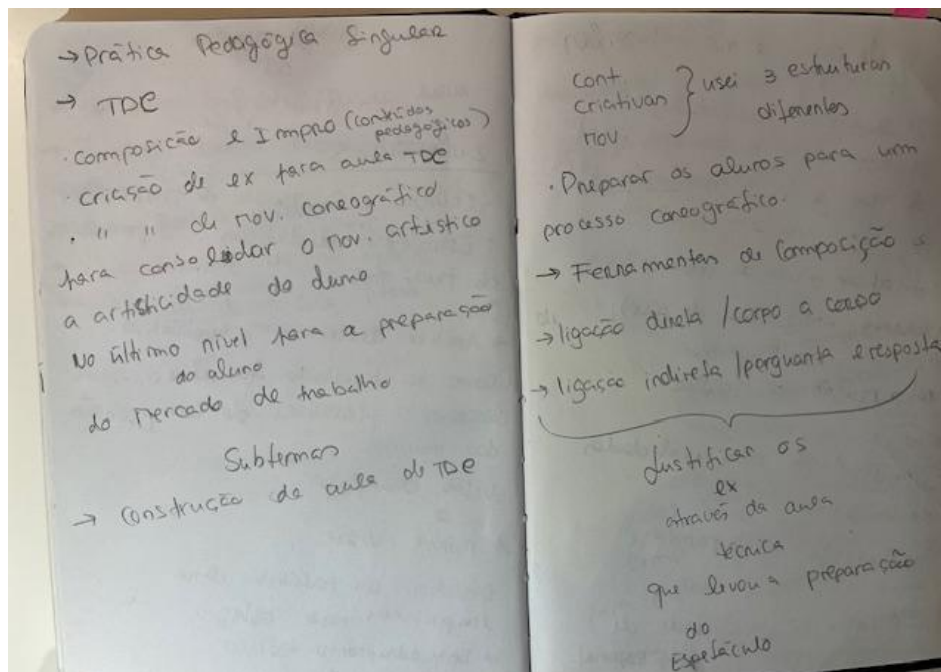 → Prática Pedagógica Singular
→ TDC
· Composição e Impro (conteúdos
pedagógicos)
· criação de ex para aula TDC
· " " de mov. coreográfico
para consolidar o mov. artístico
a artisticidade do aluno
No último nível para a preparação
do aluno
do Mercado de trabalho
Subtemas
→ Construção da aula de TDC
cont.
criativas
mov.
} usei 3 estruturas
diferentes
· Preparar os alunos para um
processo coreográfico.
→ Ferramentas de Composição
→ ligação direta / corpo a corpo
→ ligação indireta / pergunta e resposta
Justificar os
ex
através da aula
técnica
que levou a preparação
do
Espetáculo